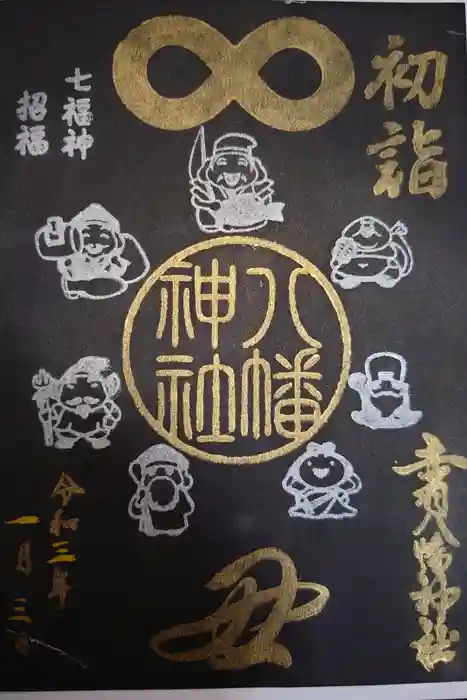 初詣
七福神
招福
八幡
神社
八幡神社
丑
令和三年
一月三日